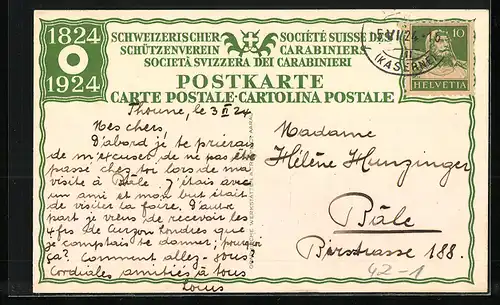 1824
1924
SCHWEIZERISCHER
SCHÜTZENVEREIN
SOCIÉTÉ SUISSE DES
CARABINIERS
SOCIETÀ SVIZZERA DEI CARABINIERI
POSTKARTE
CARTE POSTALE·CARTOLINA POSTALE
(KASERNE)
10
HELVETIA
Thoune, le 3 24
Mes chers,
D'abord je te prierais
de m'excuser de ne pas être
passé chez toi lors de ma
visite à Bâle. J'étais avec
un ami et mon but était
de visiter la foire. D'autre
part je viens de recevoir les
4 frs de Curzon Londres que
je comptais te donner; pourquoi
ça? Comment allez-vous?
Cordiales amitiés à tous
Louis
Madame
Hélène Hunzinger
Bâle
Birsstrasse 188.
42-1